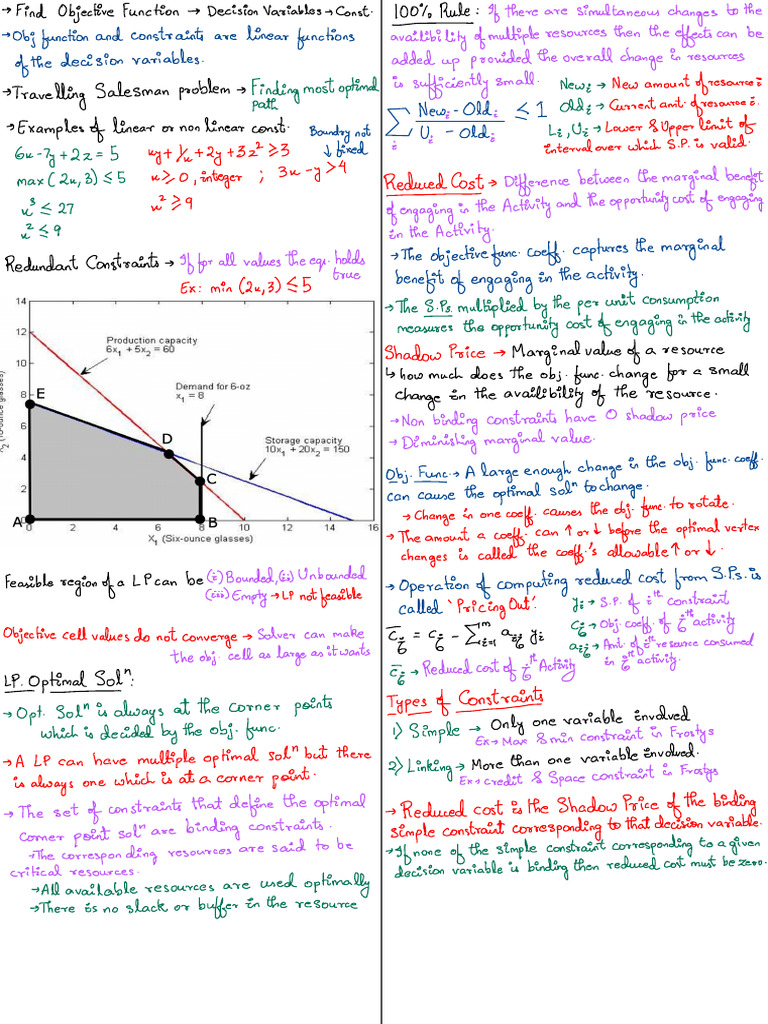 → Find Objective Function → Decision Variables → Const.
→ Obj function and constraints are linear functions
of the decision variables.
→ Travelling Salesman problem → Finding most optimal
path
→ Examples of linear or non linear const.
Boundry not
↓ fixed
6x-7y+2z = 5
xy+1/x+2y+3z² ≥ 3
max (2x,3) ≤ 5
x ≥ 0, integer ; 3x-y > 4
x³ ≤ 27
x² ≥ 9
x² ≤ 9
Redundant Constraints → If for all values the eq. holds
true
Ex: min (2x,3) ≤ 5
14
12
10
8
6
4
2
0
Production capacity
6x₁ + 5x₂ = 60
Demand for 6-oz
x₁ = 8
Storage capacity
10x₁ + 20x₂ = 150
E
D
C
A
B
0 2 4 6 8 10 12 14 16
X₁ (Six-ounce glasses)
Feasible region of a LP can be (i) Bounded, (ii) Unbounded
(iii) Empty → LP not feasible
Objective cell values do not converge → Solver can make
the obj. cell as large as it wants
LP. Optimal Solⁿ:
→ Opt. Solⁿ is always at the corner points
which is decided by the obj. func.
→ A LP can have multiple optimal solⁿ but there
is always one which is at a corner point.
→ The set of constraints that define the optimal
corner point solⁿ are binding constraints.
→ The corresponding resources are said to be
critical resources.
→ All available resources are used optimally
→ There is no slack or buffer in the resource
100% Rule: If there are simultaneous changes to the
availibility of multiple resources then the effects can be
added up provided the overall change in resources
is sufficiently small.
∑ᵢ (Newᵢ - Oldᵢ) / (Uᵢ - Oldᵢ) ≤ 1
Newᵢ → New amount of resource i
Oldᵢ → Current amt. of resource i.
Lᵢ, Uᵢ → Lower & Upper limit of
interval over which S.P. is valid.
Reduced Cost → Difference between the marginal benefit
of engaging in the Activity and the opportunity cost of engaging
in the Activity.
→ The objective func. coeff. captures the marginal
benefit of engaging in the activity.
→ The S.Ps. multiplied by the per unit consumption
measures the opportunity cost of engaging in the activity
Shadow Price → Marginal value of a resource
↳ how much does the obj. func. change for a small
change in the availibility of the resource.
→ Non binding constraints have 0 shadow price
→ Diminishing marginal value.
Obj. Func. → A large enough change in the obj. func. coeff.
can cause the optimal solⁿ to change.
→ Change in one coeff. causes the obj. func. to rotate.
→ The amount a coeff. can ↑ or ↓ before the optimal vertex
changes is called the coeff.'s allowable ↑ or ↓.
→ Operation of computing reduced cost from S.Ps. is
called 'Pricing Out'.
yᵢ → S.P. of iᵗʰ constraint
c̄ⱼ = cⱼ - ∑ᵢ₌₁ᵐ aᵢⱼ yᵢ
cⱼ → Obj. coeff. of jᵗʰ activity
aᵢⱼ → Amt. of iᵗʰ resource consumed
in jᵗʰ activity.
c̄ⱼ → Reduced cost of jᵗʰ Activity
Types of Constraints
1) Simple → Only one variable involved
Ex → Max & min constraint in Frostys
2) Linking → More than one variable involved.
Ex → credit & Space constraint in Frostys
→ Reduced cost is the Shadow Price of the binding
simple constraint corresponding to that decision variable.
→ If none of the simple constraint corresponding to a given
decision variable is binding then reduced cost must be zero.